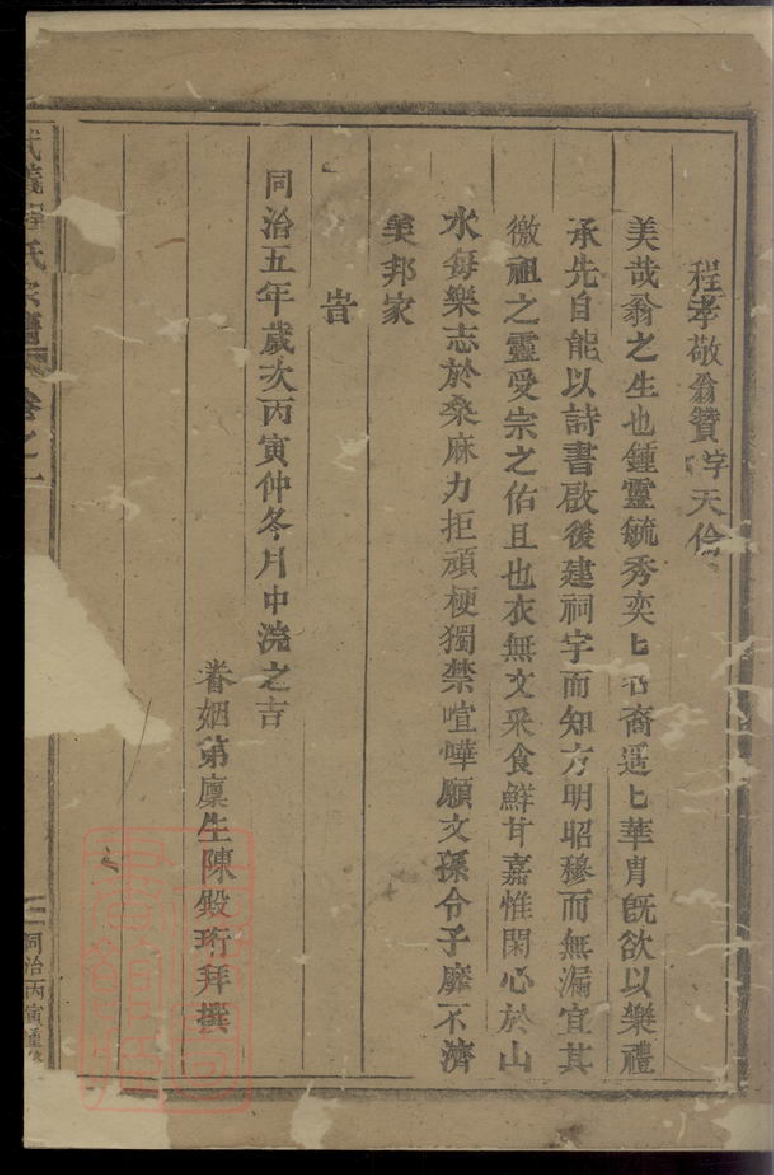 程孝敬翁贊字天倫
美哉翁之生也鍾靈毓秀奕匕裔遥匕華胄旣欲以樂禮
承先自能以詩書啟後建祠宇而知方明昭穆而無漏宜其
徼祖之靈受宗之佑且也衣無文采食鮮甘嘉惟閑心於山
水每樂志於桑麻力拒頑梗獨禁喧嘩願文孫令子靡不濟
美邦家
旹
同治五年歲次丙寅仲冬月中浣之吉
眷姻第廩生陳毀珩拜撰
氏宗譜 卷之一
同治丙寅重修